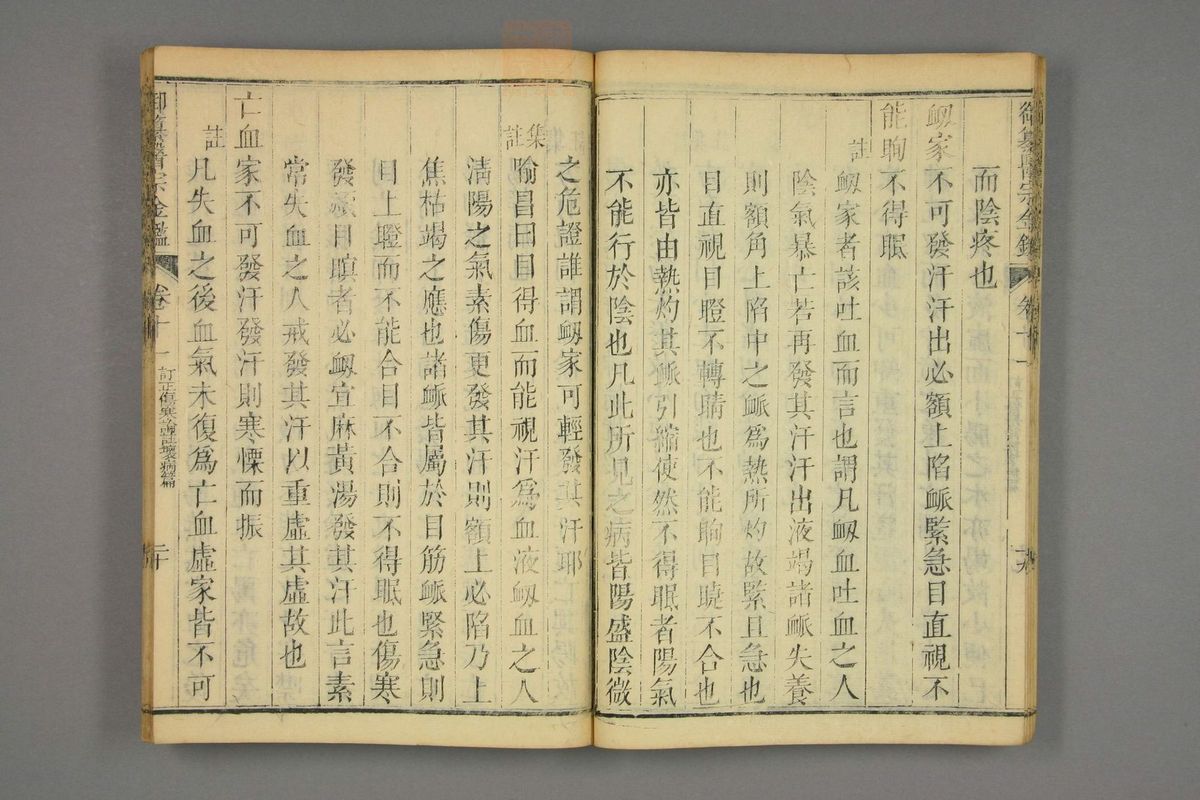 御纂醫宗金鑑 卷十一
而陰疼也
衂家不可發汗汗出必額上陷脈緊急目直視不
能眴不得眠
註衂家者該吐血而言也謂凡衂血吐血之人
陰氣暴亡若再發其汗汗出液竭諸脈失養
則額角上陷中之脈爲熱所灼故緊且急也
目直視目瞪不轉睛也不能眴目睫不合也
亦皆由熱灼其脈引縮使然不得眠者陽氣
不能行於陰也凡此所見之病皆陽盛陰微
之危證誰謂衂家可輕發其汗耶
集註喻昌曰目得血而能視汗爲血液衂血之人
清陽之氣素傷更發其汗則額上必陷乃上
焦枯竭之應也諸脈皆屬於目筋脈緊急則
目上瞪而不能合目不合則不得眠也傷寒
發煩目瞑者必衂宜麻黃湯發其汗此言素
常失血之人戒發其汗以重虛其虛故也
亡血家不可發汗發汗則寒慄而振
註凡失血之後血氣未復爲亡血虛家皆不可
御纂醫宗金鑑 卷十一 訂正傷寒論註壞病篇 二十